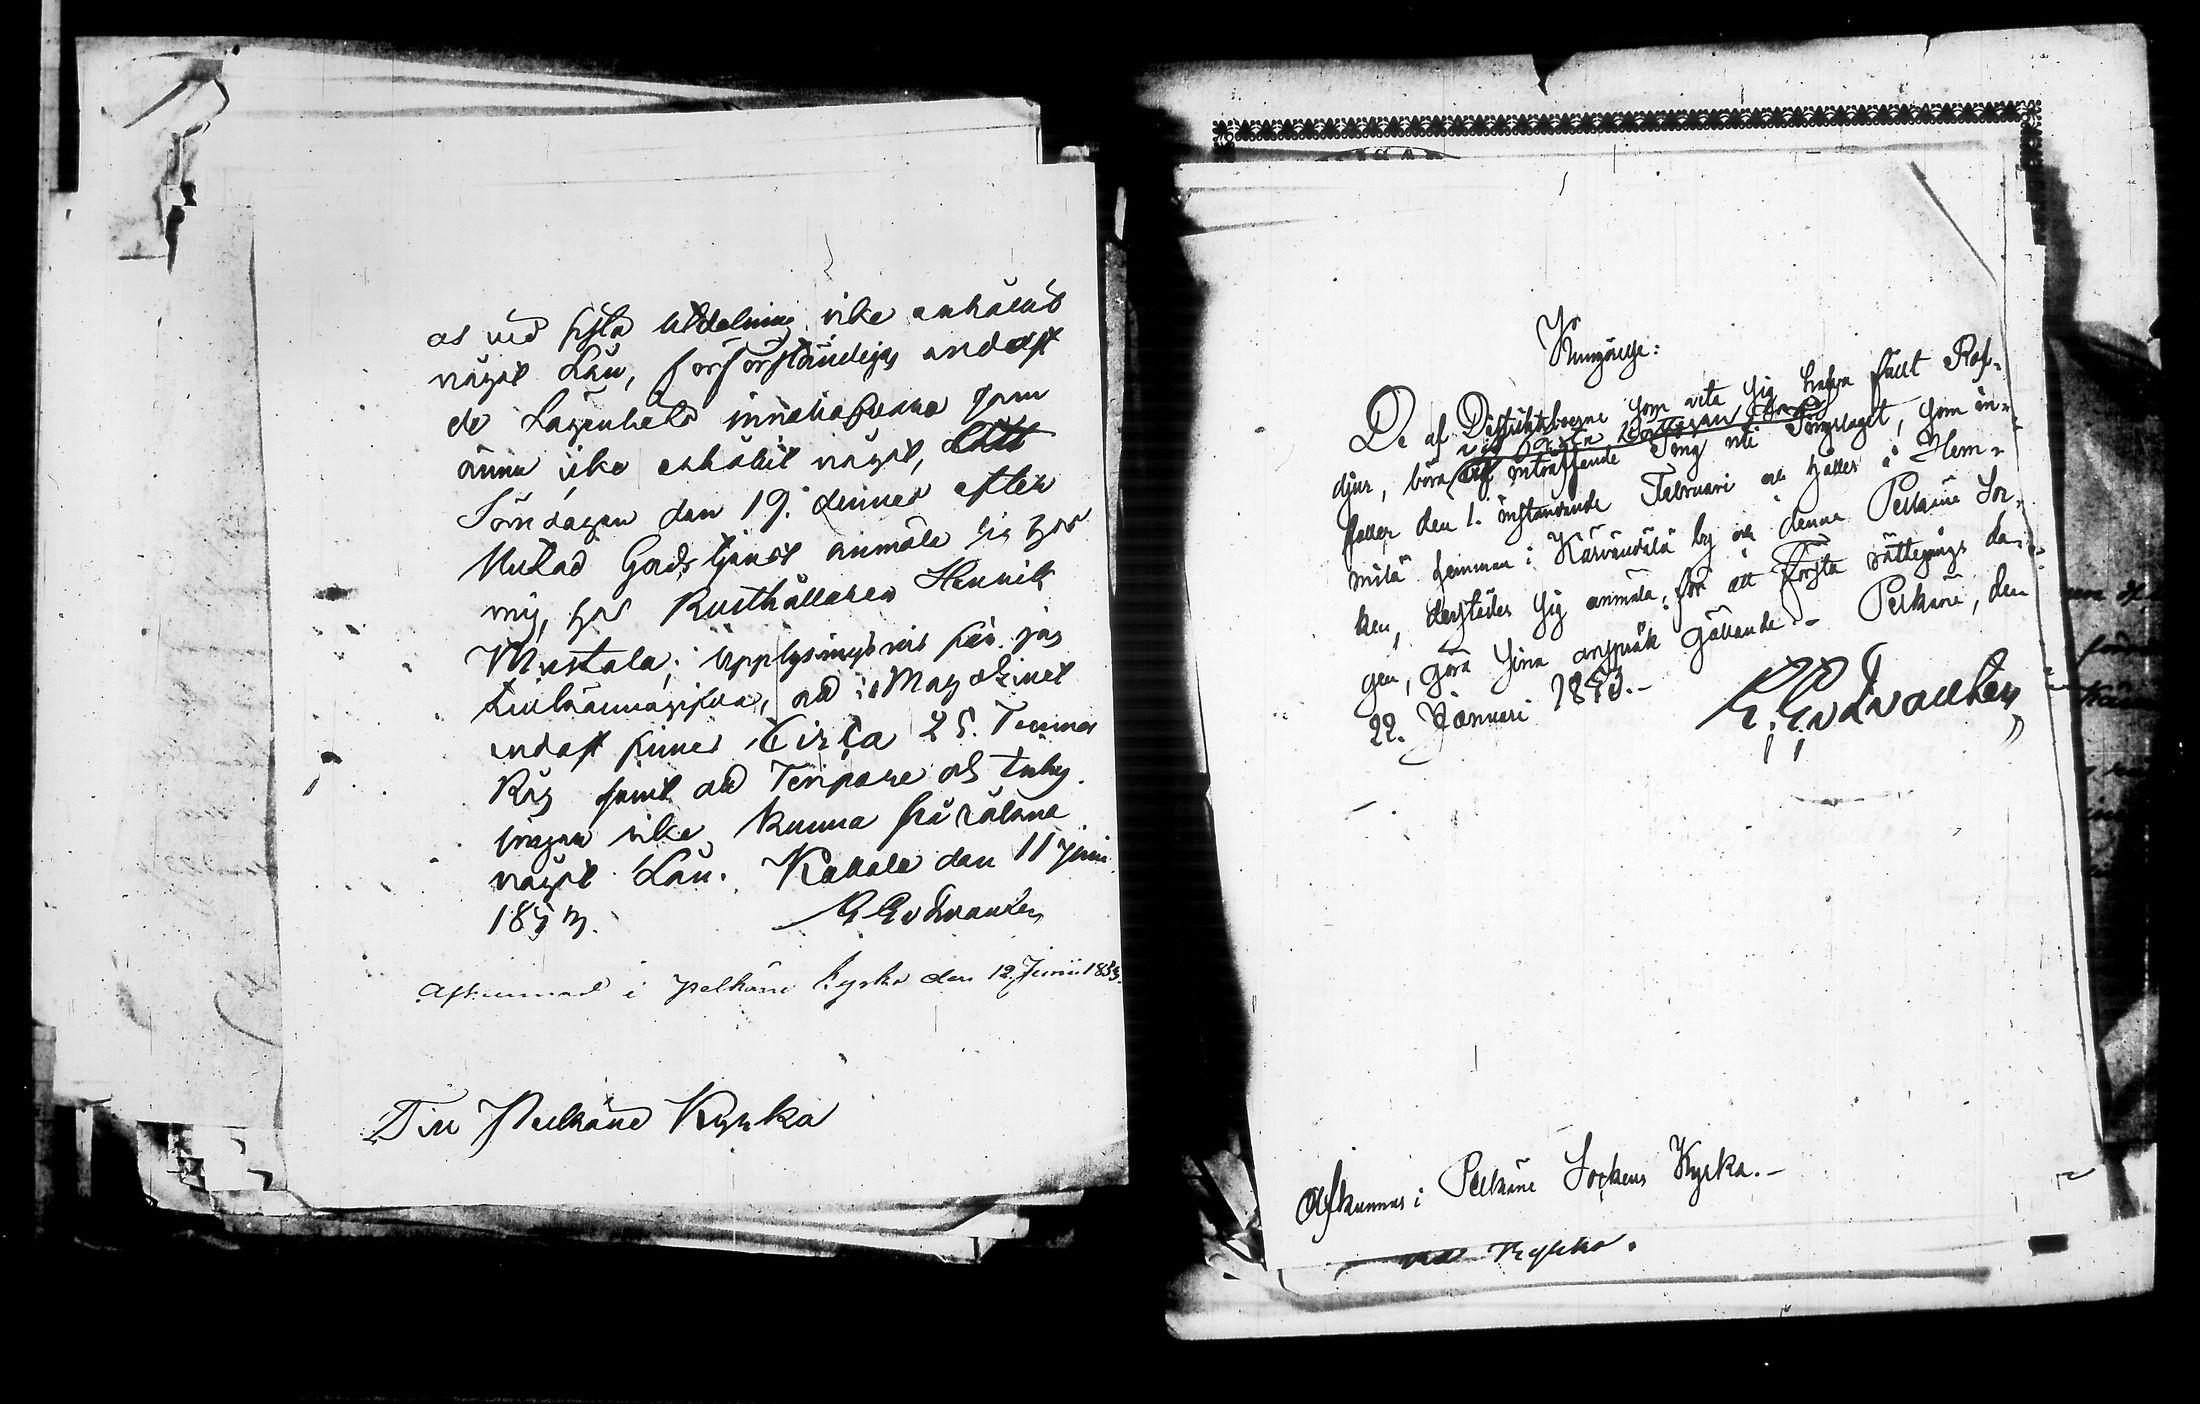 as ved sista Utdelning icke erhållit
något Lån, förständigas endast
de Lägenhets innehafvare som
ännu icke erhållit något, att
Söndagen den 19. dennes efter
slutad Gudstjenst anmäla sig hos
mig, hos Rusthållaren Henrik
Mustala; Upplysningsvis får jag
tillkännagifva, att i Magazinet
endast finnes Circa 25. Tunnor
Råg samt att Torpare och Inhy-
singar icke kunna
något Lån. den 11 Juni
1853. G Godvander
Afkunnad i Pelkäne kyrka den 12. Junii 1853.
Till Pelkäne Kyrka
Kungörelse:
De af Distriktsboerne som veta sig hafva fällt Rof-
djur, böra vid inträffande Ting uti Tingslaget, som in-
faller den 1. instundande Februari och hålles å Hem-
milä hemman i by och denne Pelkäne Soc-
ken, derstädes sig anmäla, för att Första rättegångs da-
gen, göra sina anspråk gällande. - Pelkäne, den
22. Januari 1853. -
G. Godvander
Afkunnas i Pelkäne Sockens Kyrka. -
Kyrka.